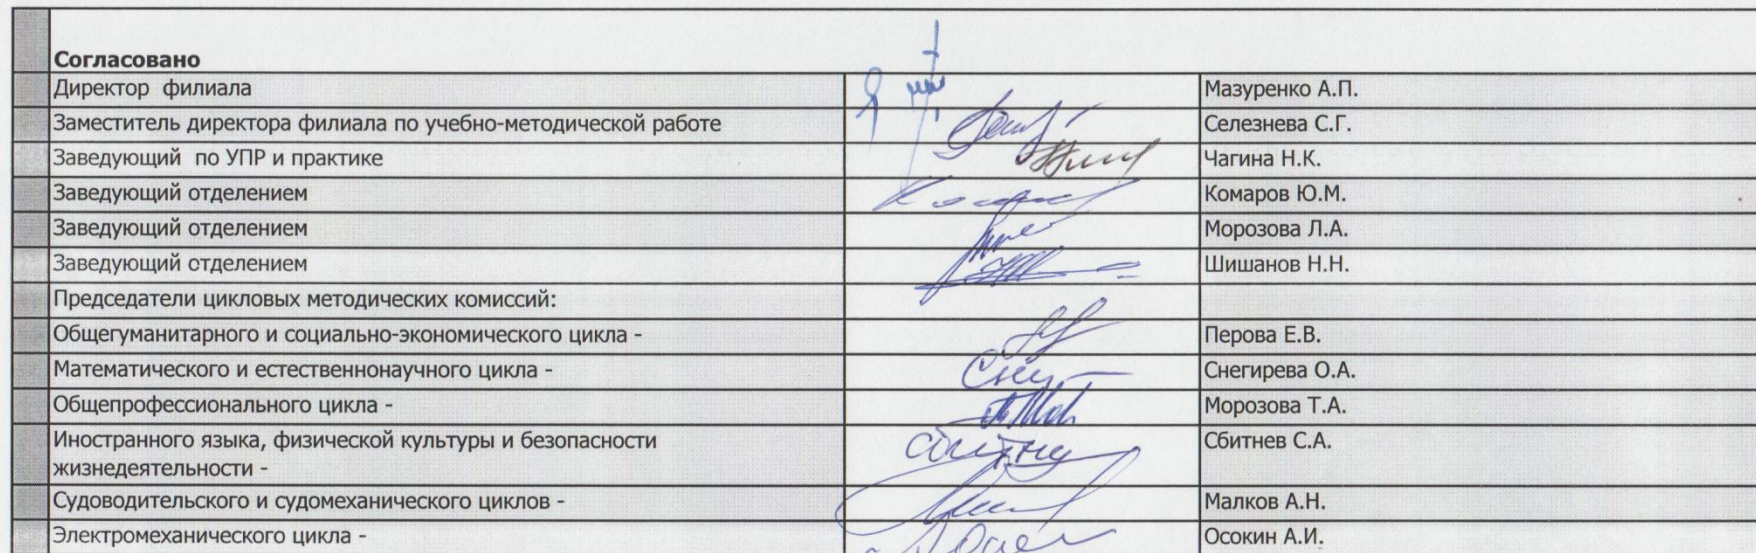 Согласовано
Директор филиала Мазуренко А.П.
Заместитель директора филиала по учебно-методической работе Селезнева С.Г.
Заведующий по УПР и практике Чагина Н.К.
Заведующий отделением Комаров Ю.М.
Заведующий отделением Морозова Л.А.
Заведующий отделением Шишанов Н.Н.
Председатели цикловых методических комиссий:
Общегуманитарного и социально-экономического цикла - Перова Е.В.
Математического и естественнонаучного цикла - Снегирева О.А.
Общепрофессионального цикла - Морозова Т.А.
Иностранного языка, физической культуры и безопасности Сбитнев С.А.
жизнедеятельности -
Судоводительского и судомеханического циклов - Малков А.Н.
Электромеханического цикла - Осокин А.И.